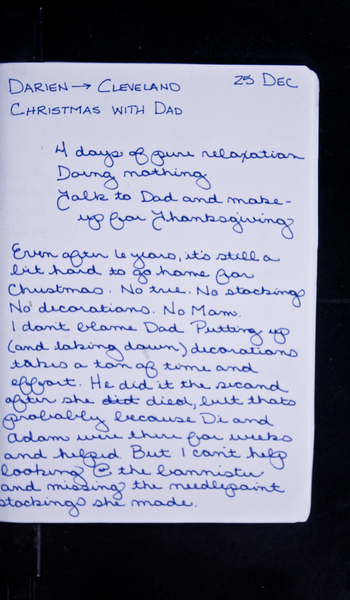 DARIEN → CLEVELAND 25 DEC
CHRISTMAS WITH DAD
4 days of pure relaxation
Doing nothing
Talk to Dad and make-
up for Thanksgiving
Even after 6 years, it's still a
bit hard to go home for
Christmas. No tree. No stockings
No decorations. No Mom.
I don't blame Dad Putting up
(and taking down) decorations
takes a ton of time and
effort. He did it the second
after she did died, but thats
probably because Di and
Adam were there for weeks
and helped But I can't help
looking @ the bannister
and missing the needlepoint
stockings she made.